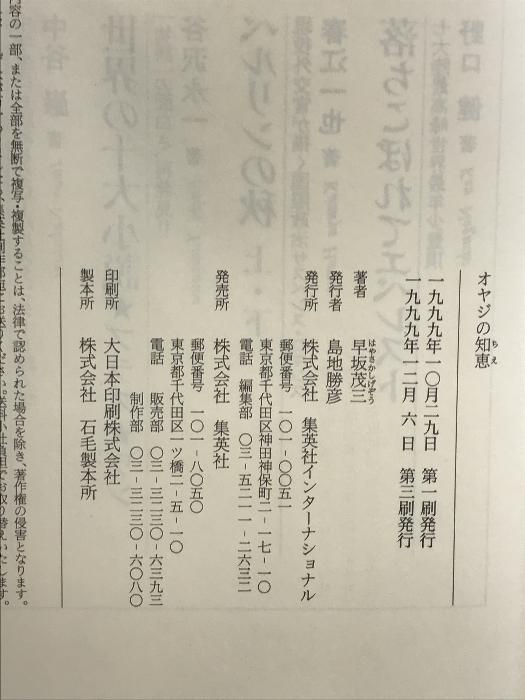 オヤジの知恵
ちえ
一九九九年一〇月二九日　第一刷発行
一九九九年一二月　六日　第三刷発行
著者　早坂茂三
はやさかしげぞう
発行者　島地勝彦
発行所　株式会社　集英社インターナショナル
郵便番号　一〇一-〇〇五一
東京都千代田区神田神保町二-一七-一〇
電話　編集部　〇三-五二一一-二六三二
発売所　株式会社　集英社
郵便番号　一〇一-八〇五〇
東京都千代田区一ツ橋二-五-一〇
電話　販売部　〇三-三二三〇-六三九三
制作部　〇三-三二三〇-六〇八〇
印刷所　大日本印刷株式会社
製本所　株式会社　石毛製本所
内容の一部、または全部を無断で複写・複製することは、法律で認められた場合を除き、著作権の侵害となります。